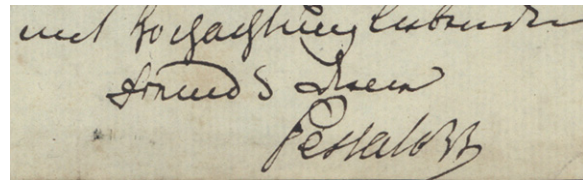 mit Hochachtung liebenden
Freund & Diener
Pestalozzi